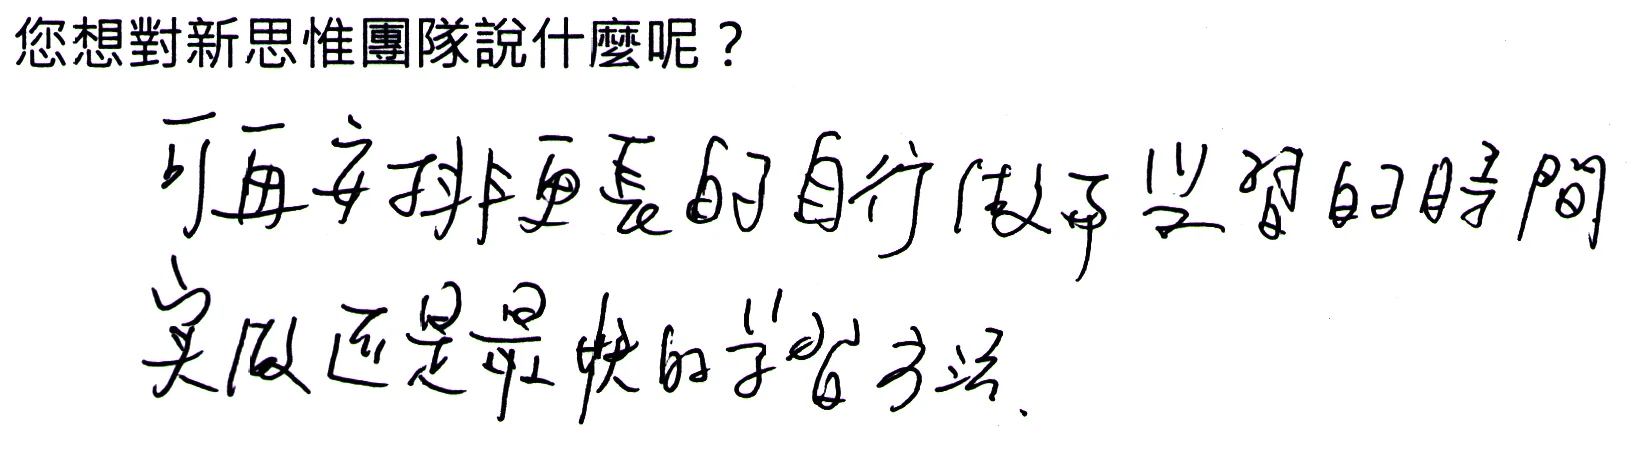 您想對新思惟團隊說什麼呢？
可再安排更長的自行做再學習的時間
实做还是最快的学習方法、